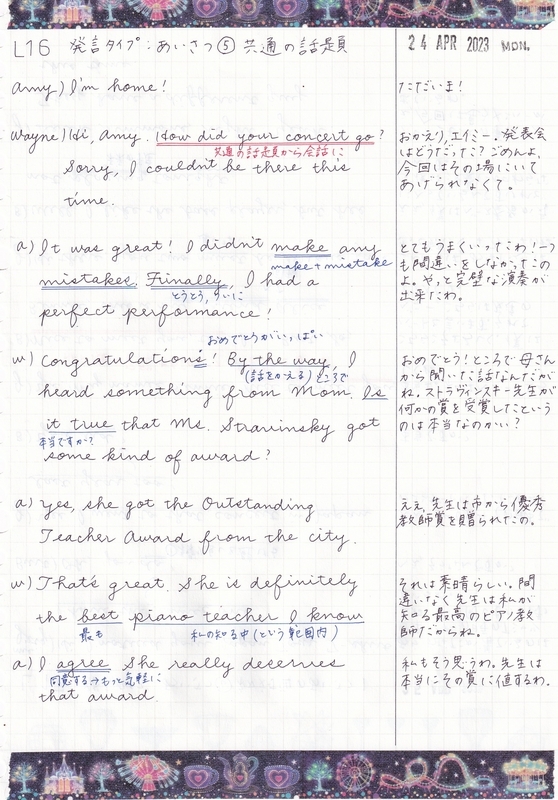 L16 発言タイプ:あいさつ⑤ 共通の話題
24 APR 2023 MON.
Amy) I'm home!
ただいま!
Wayne) Hi, Amy. How did your concert go?
共通の話題から会話に
Sorry, I couldn't be there this
time.
おかえり,エイミー。発表会
はどうだった?ごめんよ、
今回はその場にいて
あげられなくて。
a) It was great! I didn't make any
make + mistake
mistakes. Finally, I had a
とうとう,ついに
perfect performance!
とてもうまくいったわ!一つ
も間違いをしなかったの
よ。やっと完璧な演奏が
出来たわ。
おめでとうがいっぱい
w) Congratulations! By the way, I
(話をかえる)ところで
heard something from Mom. Is
it true that Ms. Stravinsky got
本当ですか?
some kind of award?
おめでとう!ところで母さん
から聞いた話なんだが
ね。ストラヴィンスキー先生が
何かの賞を受賞したという
のは本当なのかい?
a) Yes, she got the Outstanding
Teacher Award from the city.
ええ,先生は市から優秀
教師賞を贈られたの。
w) That's great. She is definitely
the best piano teacher I know
最も
私の知る中(という範囲内)
それは素晴らしい。間
違いなく先生は私が
知る最高のピアノ教
師だからね。
a) I agree She really deserves
同意する→もっと気軽に
that award.
私もそう思うわ。先生は
本当にその賞に値するわ。